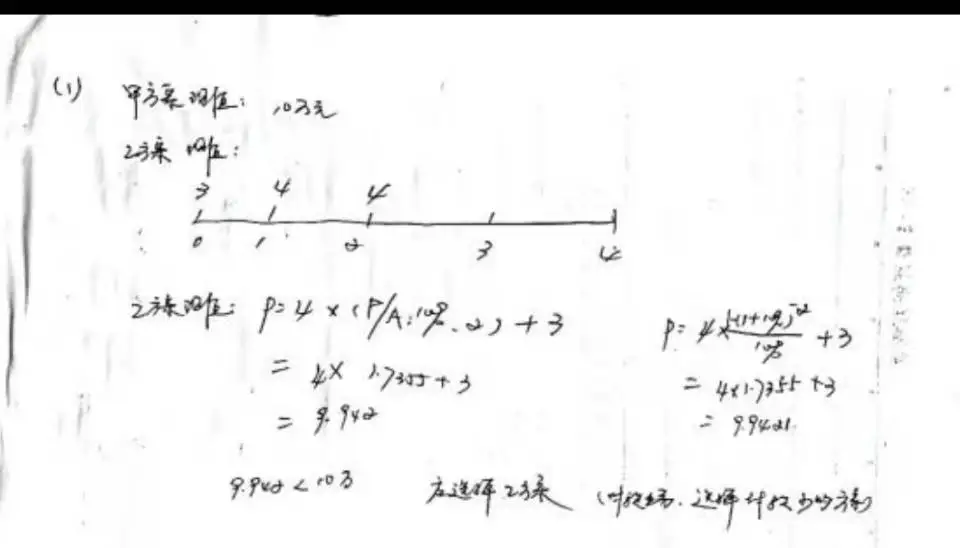 (1) 甲方案现值: 10万元
乙方案现值:
3 4 4
0 1 2 3 4
乙方案现值: P=4×(P/A,10%,2)+3
=4× 1.7355+3
=9.942
P=4×\frac{1-(1+10%)^{-2}}{10%}+3
=4×1.7355+3
=9.9421
9.942<10万 应选择乙方案 选择付款少的方案)